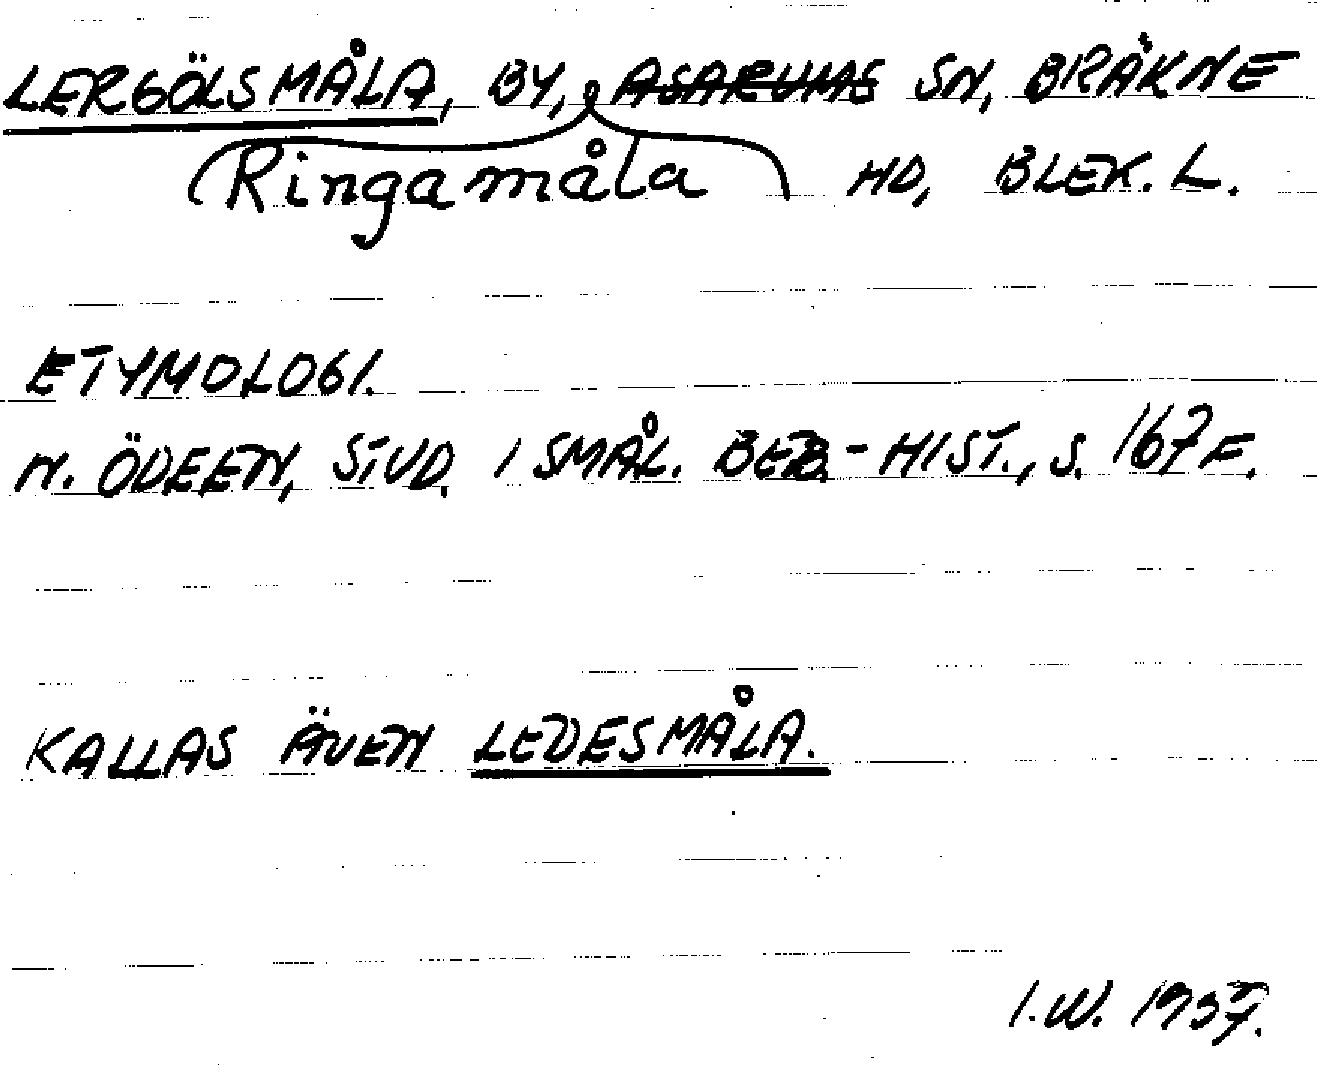 LERGÖLSMÅLA, BY, ASARUMS SN, BRÄKNE
Ringamåla HD, BLEK. L.
ETYMOLOGI.
N. ÖDEEN, STUD. I SMÅL. BEB.-HIST., S. 167 F.
KALLAS ÄVEN LEDESMÅLA.
I.W. 1937.